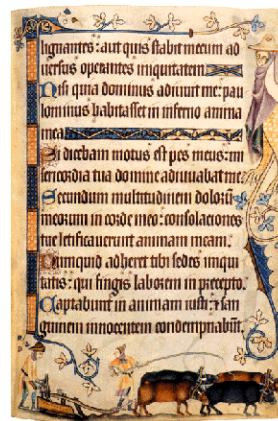 lignantes: aut quis stabit mecum ad
uersus operantes iniquitatem
Nisi quia dominus adiuuit me: pau
lominus habitasset in inferno anima
mea
Si dicebam motus est pes meus: mi
sericordia tua domine adiuuabat me.
Secundum multitudinem dolorum
meorum in corde meo: consolaciones
tue letificauerunt animam meam.
Numquid adheret tibi sedes iniqui
tatis: qui fingis laborem in precepto.
Captabunt in animam iusti: & san
guinem innocentem condempnabunt.